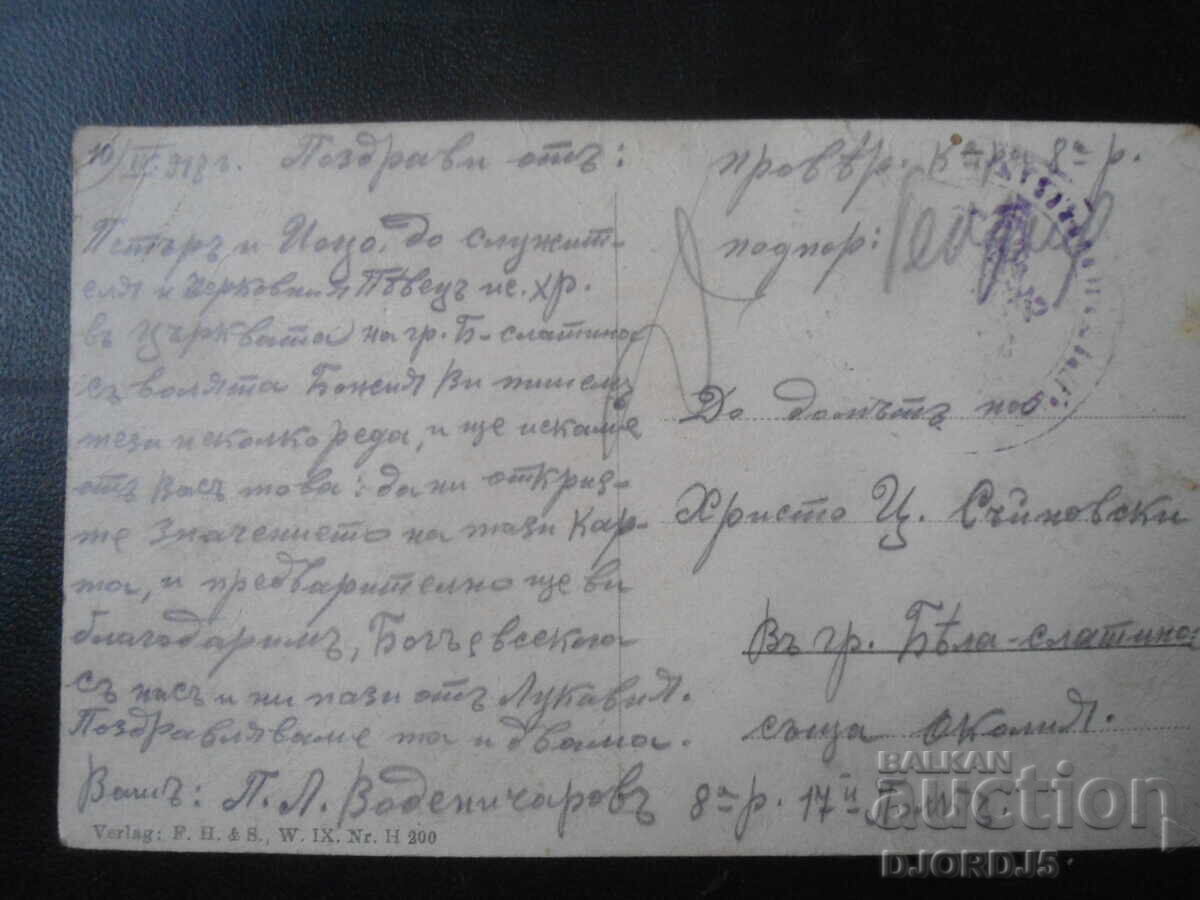 10/IV. 918 г. Поздрави отъ:
Петъръ и Цоцо, до служит-
еля и церковния Пѣвецъ ис. хр.
въ църквата на гр. Б-слатина
съ волята Божия Ви пишемъ
тези неколко реда, и ще искаме
отъ Васъ това: да ни откриե-
те значението на тази кар-
та, и предварително ще ви
благодаримъ, Богъ е всекога
съ насъ и ни пази отъ Лукавия.
Поздравляваме та и двама.
Вашъ: П. Л. Воденичаровъ 8а р. 17й
Verlag: F. H. & S., W. IX. Nr. H 200
провѣр. К-ра 8а р.
подпор:
До домътъ на
Христо Ц. Съйновски
Въ гр. Бѣла-слатина
същa околия.
BALKAN
auction
DJORDJ5